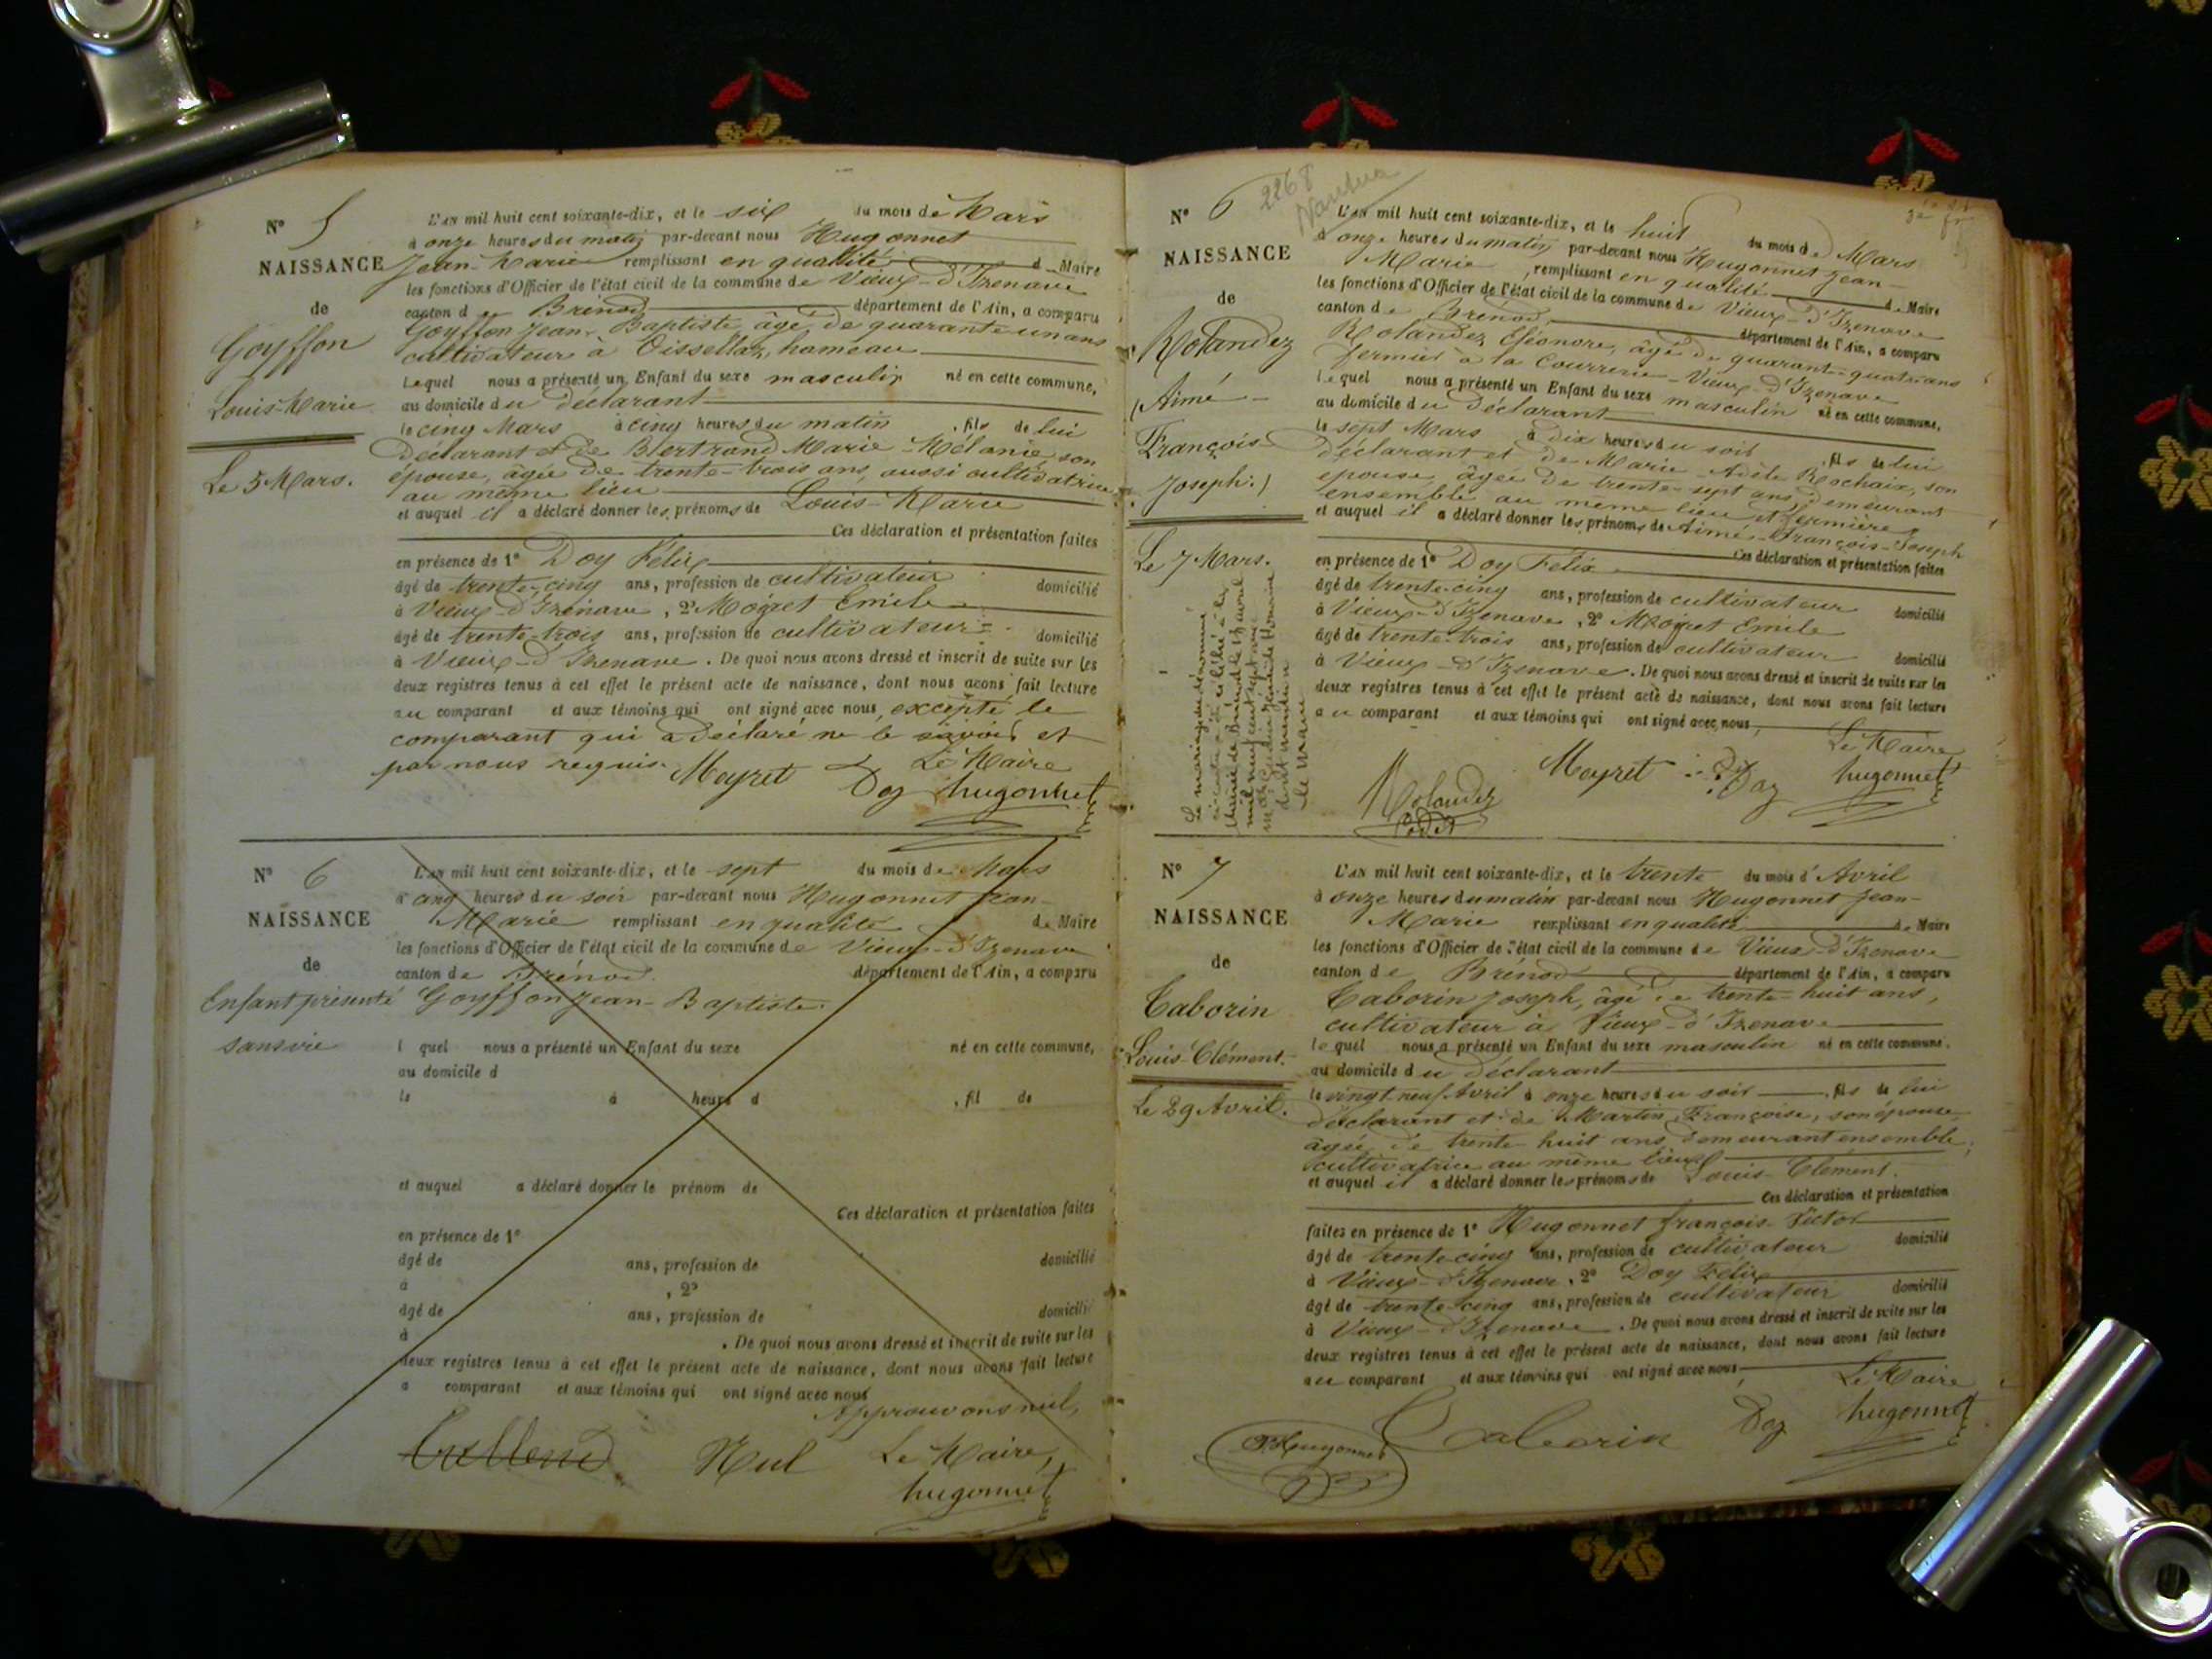 N° 5
NAISSANCE
de
Goyffon
Louis-Marie
Le 5 Mars.
L'AN mil huit cent soixante-dix, et le six du mois de Mars
à onze heures du matin par-devant nous Hugonnet
Jean-Marie remplissant en qualité de Maire
les fonctions d'Officier de l'état civil de la commune de Vieux-d'Izenave
canton de Brénod département de l'Ain, a comparu
Goyffon Jean-Baptiste, âgé de quarante-un ans
cultivateur à Oissellaz, hameau
Lequel nous a présenté un Enfant du sexe masculin né en cette commune,
au domicile du déclarant
le cinq Mars à cinq heures du matin, fils de lui
déclarant et de Bertrand Marie-Mélanie, son
épouse, âgée de trente-trois ans, aussi cultivatrice
au même lieu
et auquel il a déclaré donner les prénoms de Louis-Marie
Ces déclaration et présentation faites
en présence de 1° Doy Félix
âgé de trente-cinq ans, profession de cultivateur domicilié
à Vieux-d'Izenave, 2° Moyret Emile
âgé de trente-trois ans, profession de cultivateur domicilié
à Vieux-d'Izenave. De quoi nous avons dressé et inscrit de suite sur les
deux registres tenus à cet effet le présent acte de naissance, dont nous avons fait lecture
au comparant et aux témoins qui ont signé avec nous, excepté le
comparant qui a déclaré ne le savoir et
par nous requis. Le Maire
Moyret Doy hugonnet
N° 6
NAISSANCE
de
Enfant présenté
sans vie
L'AN mil huit cent soixante-dix, et le sept du mois de Mars
à cinq heures du soir par-devant nous Hugonnet Jean-
Marie remplissant en qualité de Maire
les fonctions d'Officier de l'état civil de la commune de Vieux-d'Izenave
canton de Brénod département de l'Ain, a comparu
Goyffon Jean-Baptiste
l quel nous a présenté un Enfant du sexe né en cette commune,
au domicile d
le à heure d , fil de
et auquel a déclaré donner le prénom de
Ces déclaration et présentation faites
en présence de 1°
âgé de ans, profession de domicilié
à , 2°
âgé de ans, profession de domicilié
à . De quoi nous avons dressé et inscrit de suite sur les
deux registres tenus à cet effet le présent acte de naissance, dont nous avons fait lecture
a comparant et aux témoins qui ont signé avec nous
Approuvons nul,
Nul Le Maire,
hugonnet
2268
Nantua
N° 6
NAISSANCE
de
Rolandez
(Aimé-
François-
Joseph.)
Le 7 Mars.
L'AN mil huit cent soixante-dix, et le huit du mois de Mars
à onze heures du matin par-devant nous Hugonnet Jean-
Marie, remplissant en qualité de Maire
les fonctions d'Officier de l'état civil de la commune de Vieux-d'Izenave
canton de Brénod, département de l'Ain, a comparu
Rolandez Eléonore, âgé de quarante-quatre ans
fermier à la Courrerie-Vieux-d'Izenave
lequel nous a présenté un Enfant du sexe masculin né en cette commune,
au domicile du déclarant
le sept Mars à dix heures du soir, fils de lui
déclarant et de Marie-Adèle Rochaix, son
épouse, âgée de trente-sept ans, demeurant
ensemble au même lieu et fermière
et auquel il a déclaré donner les prénoms de Aimé-François-Joseph
Ces déclaration et présentation faites
en présence de 1° Doy Félix
âgé de trente-cinq ans, profession de cultivateur domicilié
à Vieux-d'Izenave, 2° Moyret Emile
âgé de trente-trois ans, profession de cultivateur domicilié
à Vieux-d'Izenave. De quoi nous avons dressé et inscrit de suite sur les
deux registres tenus à cet effet le présent acte de naissance, dont nous avons fait lecture
au comparant et aux témoins qui ont signé avec nous,
Le Maire
Rolandez Moyret Doy hugonnet
Le mariage du dénommé
dont mention
Le Maire
N° 7
NAISSANCE
de
Taborin
Louis-Clément.
Le 29 Avril.
L'AN mil huit cent soixante-dix, et le trente du mois d'Avril
à onze heures du matin par-devant nous Hugonnet Jean-
Marie remplissant en qualité de Maire
les fonctions d'Officier de l'état civil de la commune de Vieux-d'Izenave
canton de Brénod département de l'Ain, a comparu
Taborin Joseph, âgé de trente-huit ans,
cultivateur à Vieux-d'Izenave
lequel nous a présenté un Enfant du sexe masculin né en cette commune,
au domicile du déclarant
le vingt-neuf Avril à onze heures du soir, fils de lui
déclarant et de Martin Françoise, son épouse
âgée de trente-huit ans, demeurant ensemble,
cultivatrice au même lieu
et auquel il a déclaré donner les prénoms de Louis-Clément.
Ces déclaration et présentation
faites en présence de 1° Hugonnet françois-Victor
âgé de trente-cinq ans, profession de cultivateur domicilié
à Vieux-d'Izenave, 2° Doy Félix
âgé de trente-cinq ans, profession de cultivateur domicilié
à Vieux-d'Izenave. De quoi nous avons dressé et inscrit de suite sur les
deux registres tenus à cet effet le présent acte de naissance, dont nous avons fait lecture
au comparant et aux témoins qui ont signé avec nous,
Le Maire
Hugonnet Taborin Doy hugonnet